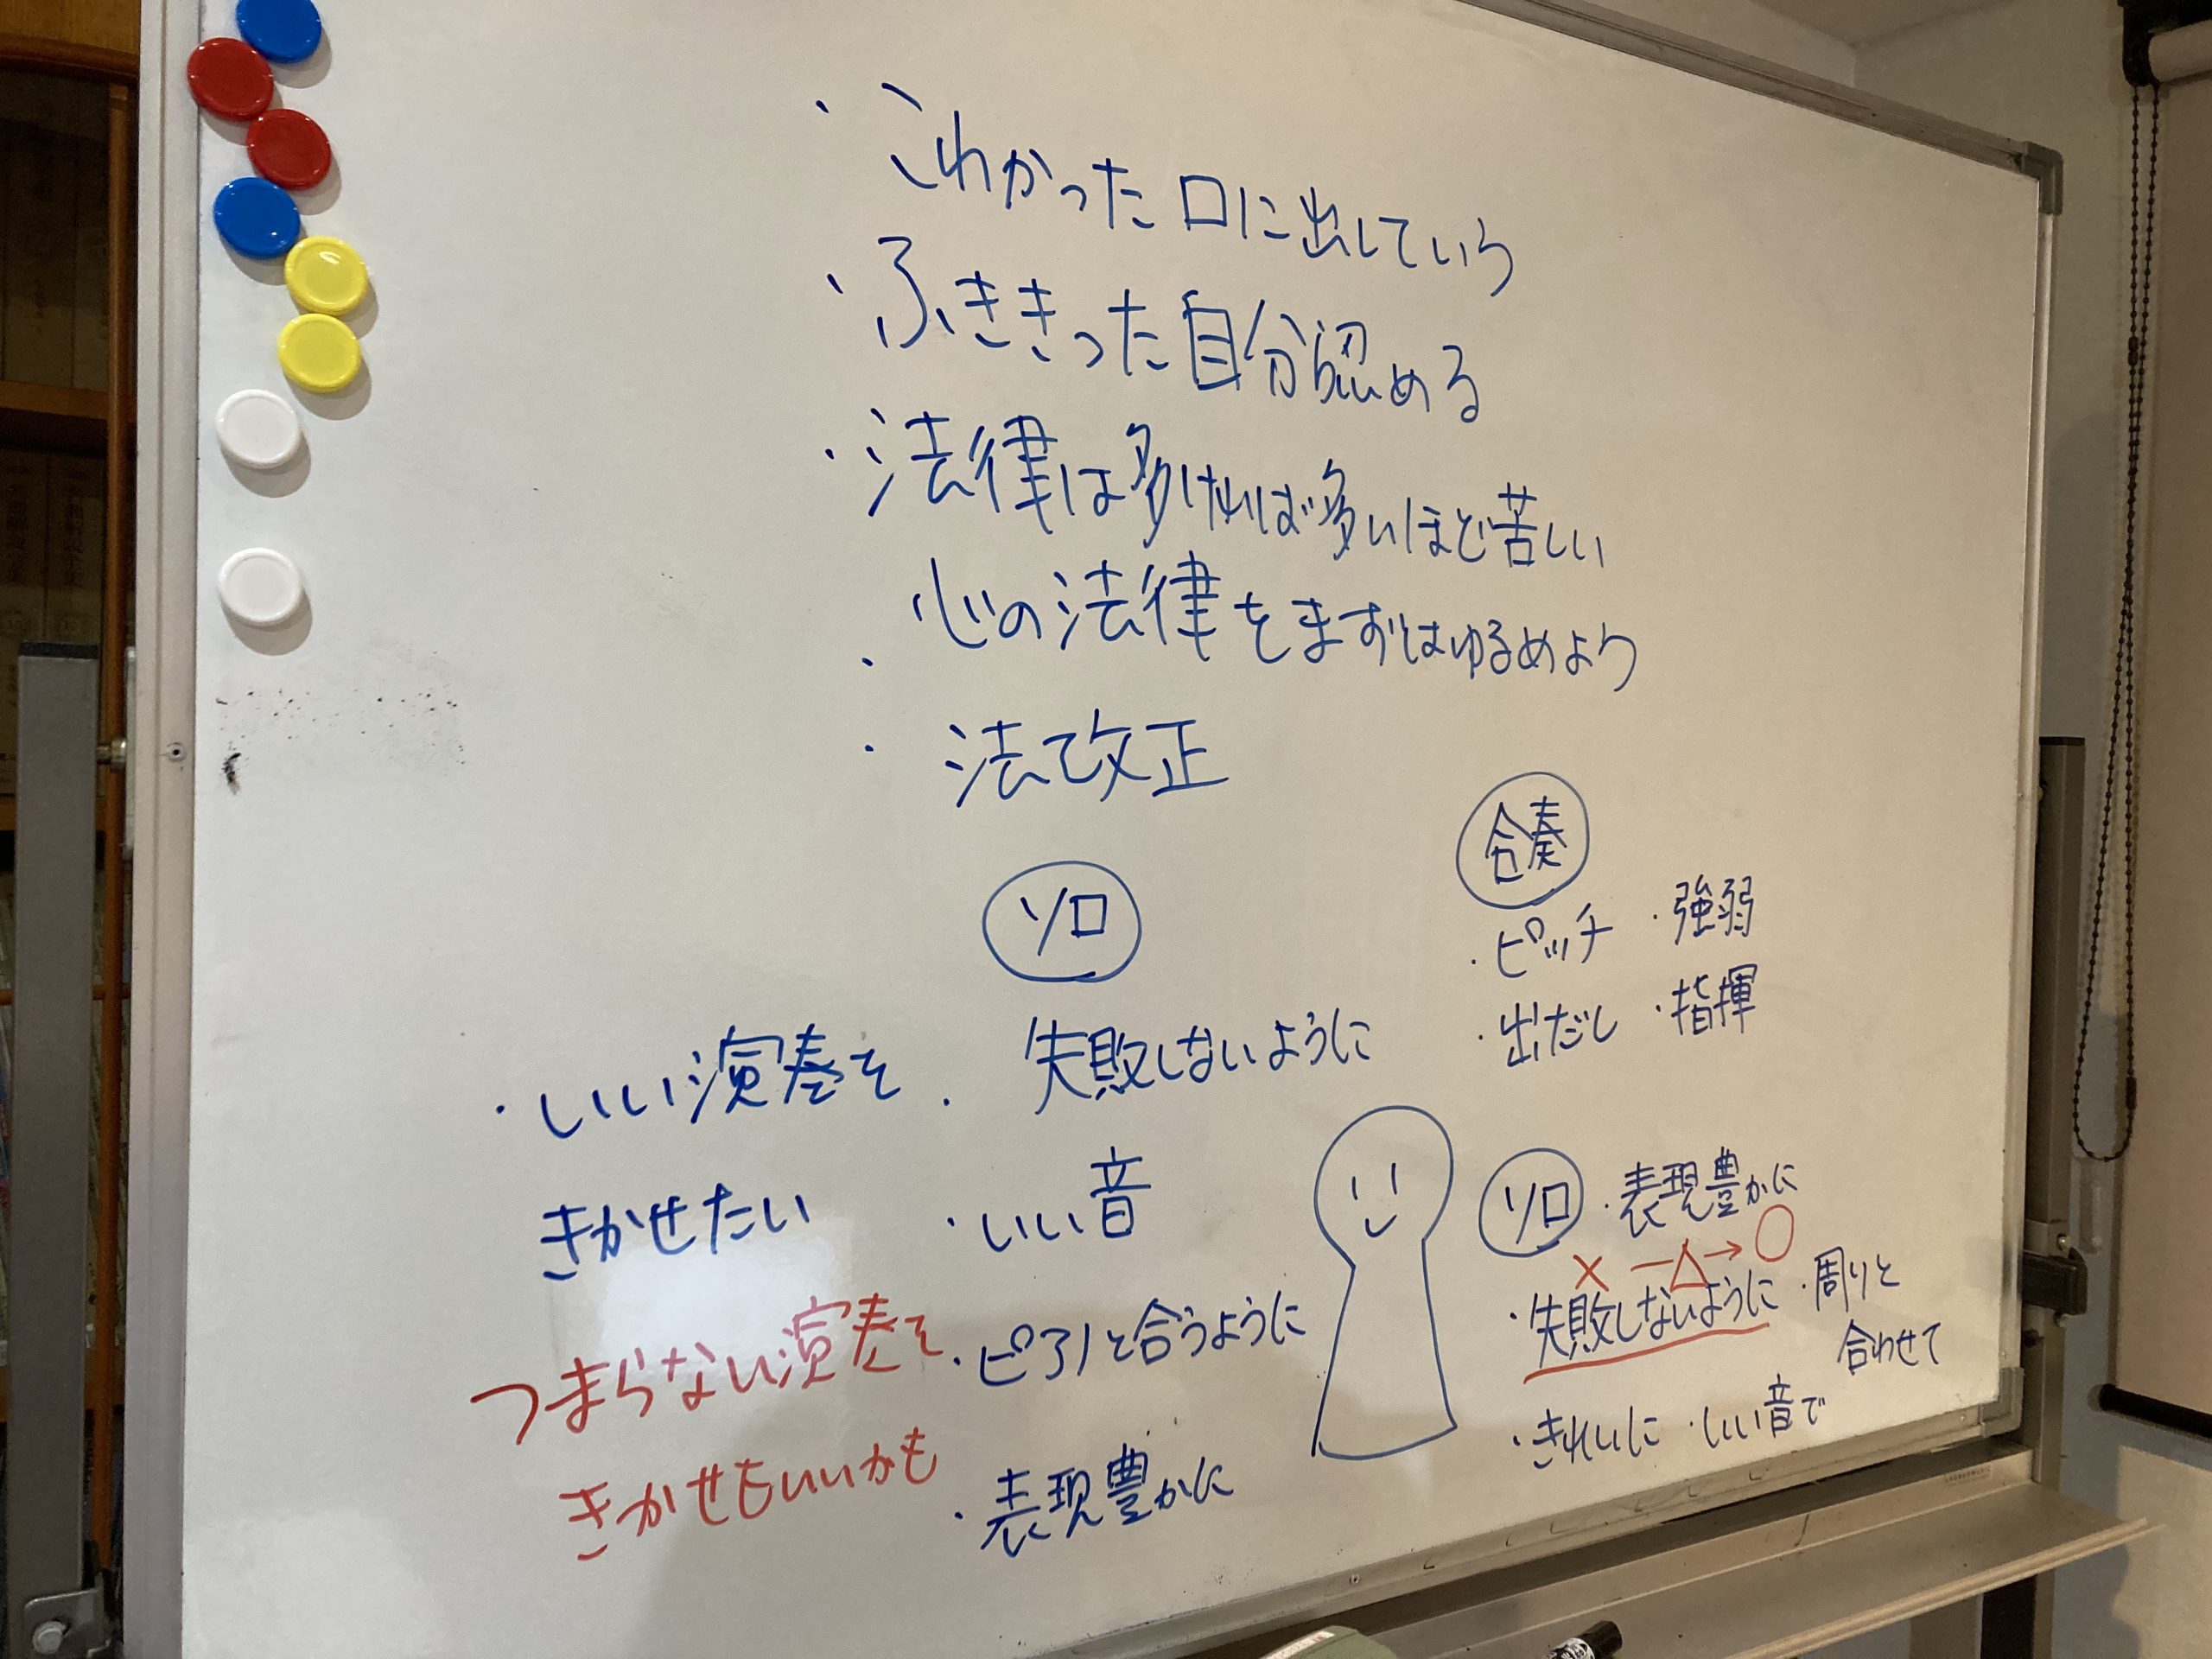 ・こわかった口に出していう
・ふききった自分認める
・法律は多ければ多いほど苦しい
・心の法律をまずはゆるめよう
・法改正
ソロ
・いい演奏を
きかせたい
つまらない演奏を
きかせもいいかも
・失敗しないように
・いい音
・ピアノと合うように
・表現豊かに
合奏
・ピッチ ・強弱
・出だし ・指揮
ソロ ・表現豊かに
×→△→○
・失敗しないように ・周りと
合わせて
・きれいに ・いい音で